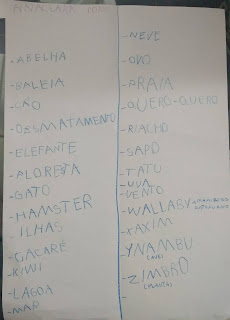 ANA CLARA
- ABELHA
- BALEIA
- CÃO
- DESMATAMENTO
- ELEFANTE
- FLORESTA
- GATO
- HAMSTER
ILHAS
- JACARÉ
- KIWI
- LAGOA
- MAR
- NEVE
- OVO
- PRAIA
- QUERO-QUERO
- RIACHO
- SAPO
- TATU
- UVA
- VENTO
- WALLABY
- XAXIM
- YNAMBU
(AVE)
- ZIMBRO
(PLANTA)